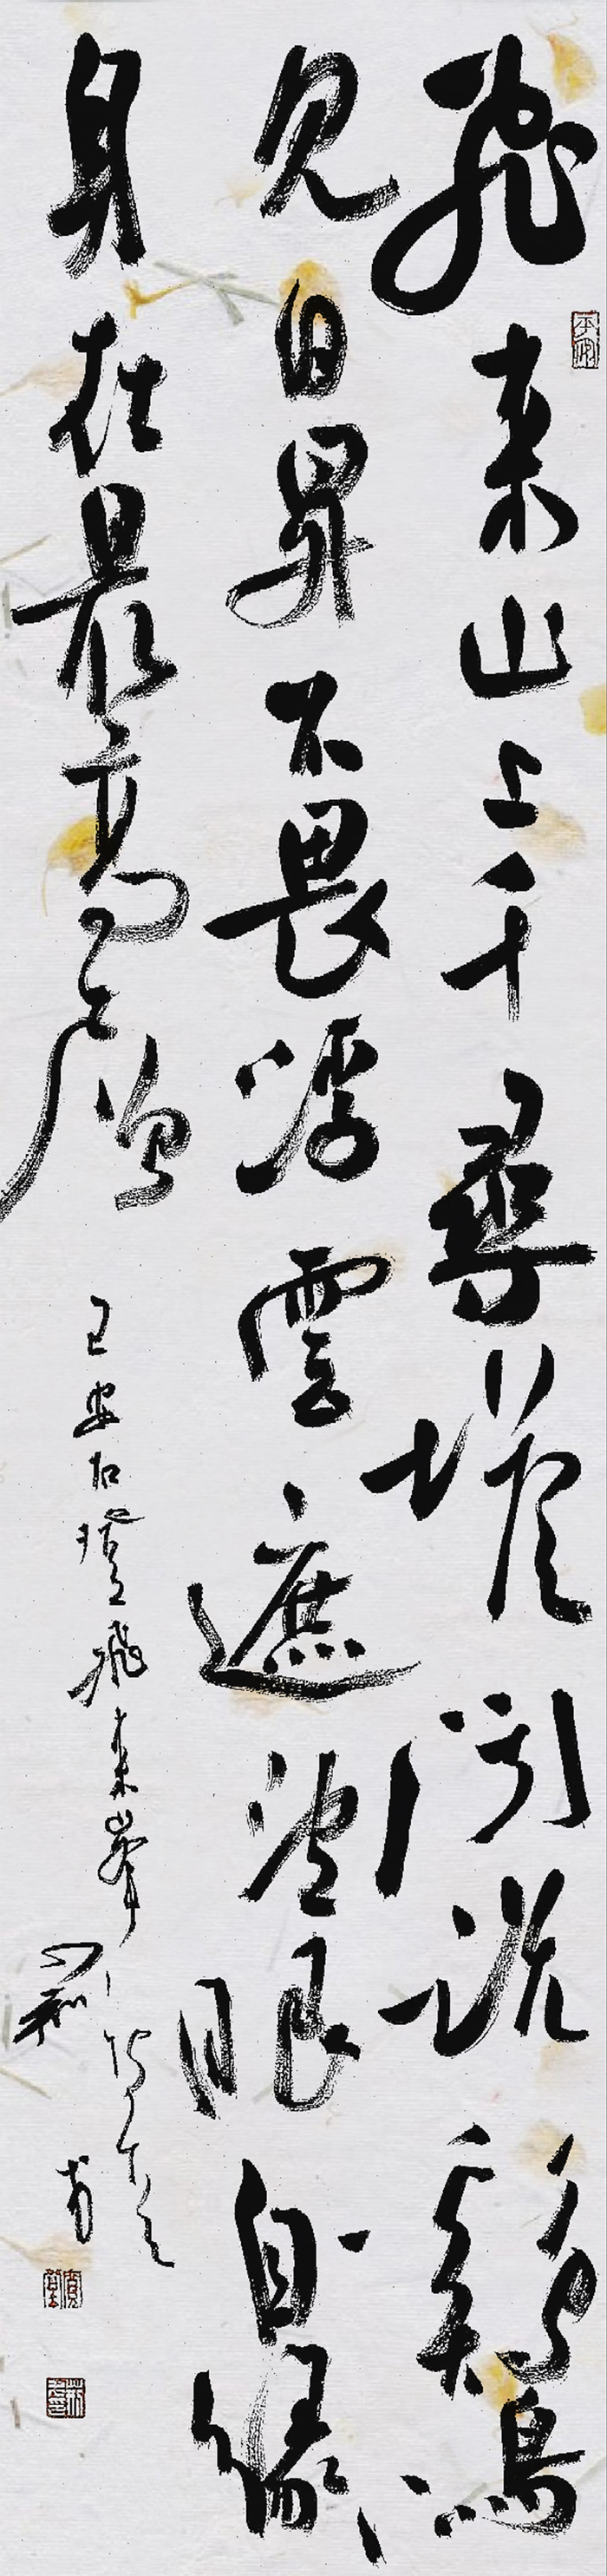 飛来山上千尋塔聞説鷄鳴
見日昇不畏浮雲遮望眼自緣
身在最高層
王安石登飛来峯